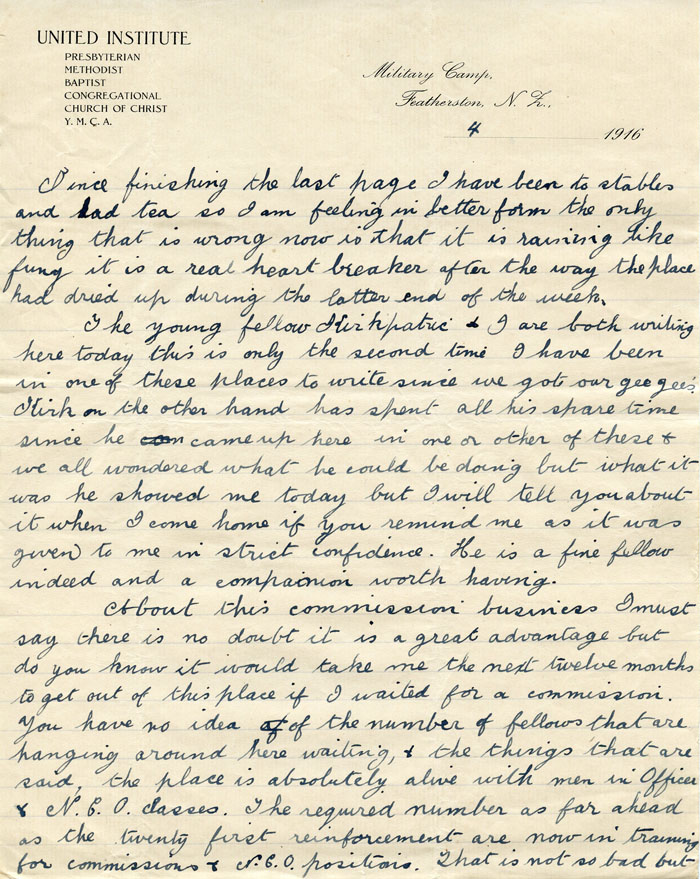 UNITED INSTITUTE
PRESBYTERIAN
METHODIST
BAPTIST
CONGREGATIONAL
CHURCH OF CHRIST
Y. M. C. A.
Military Camp,
Featherston, N. Z.,
4 1916
Since finishing the last page I have been to stables
and had tea so I am feeling in better form the only
thing that is wrong now is that it is raining like
fung it is a real heart breaker after the way the place
had dried up during the latter end of the week.
The young fellow Kirkpatric & I are both writing
here today this is only the second time I have been
in one of these places to write since we got our gee gees.
Kirk on the other hand has spent all his spare time
since he came up here in one or other of these &
we all wondered what he could be doing but what it
was he showed me today but I will tell you about
it when I come home if you remind me as it was
given to me in strict confidence. He is a fine fellow
indeed and a compainion worth having.
About this commission business I must
say there is no doubt it is a great advantage but
do you know it would take me the next twelve months
to get out of this place if I waited for a commission.
You have no idea of of the number of fellows that are
hanging around here waiting, & the things that are
said, the place is absolutely alive with men in Officer
& N.C.O. classes. The required number as far ahead
as the twenty first reinforcement are now in training
for commissions & N.C.O. positions. That is not so bad but